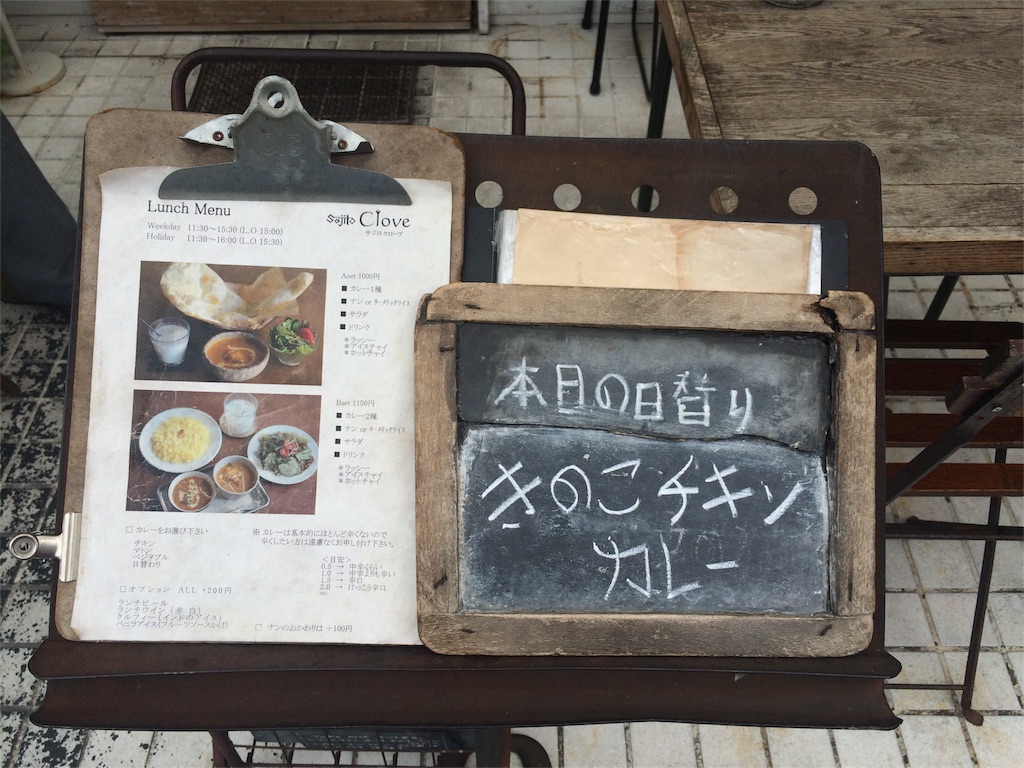 Lunch Menu
Weekday 11:30～15:30 (L.O 15:00)
Holiday 11:30～16:00 (L.O 15:30)
Sajilo Clove
サジロ クローブ
Aset 1000円
■ カレー1種
■ ナン or ターメリックライス
■ サラダ
■ ドリンク
＊ラッシー
＊アイスチャイ
＊ホットチャイ
Bset 1150円
■ カレー2種
■ ナン or ターメリックライス
■ サラダ
■ ドリンク
＊ラッシー
＊アイスチャイ
＊ホットチャイ
□ カレーをお選び下さい
チキン
マトン
ベジタブル
日替わり
※ カレーは基本的にほとんど辛くないので
辛くしたい方は遠慮なくお申し付け下さい。
＜目安＞
0.5 → 中辛くらい
1.0 → 中辛よりも辛い
1.5 → 辛口
2.0 → けっこう辛口
□ オプション ALL +200円
ランチビール
ランチワイン (赤 白)
クルフィー(インドのアイス)
バニラアイス(フルーツソースがけ)
□ ナンのおかわりは +100円
本日の日替り
きのこチキン
カレー